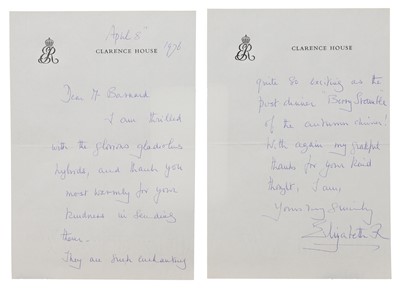 April 5th
1976
CLARENCE HOUSE
Dear Mr Barnard
I am thrilled
with the glorious gladiolus
hybrids, and thank you
most warmly for your
kindness in sending
them.
They are such enchanting
CLARENCE HOUSE
quite so exciting as the
post chinner "Berry
of the autumn
With again my grateful
thanks for your kind
thought, I am,
Yours very sincerely
Elizabeth R